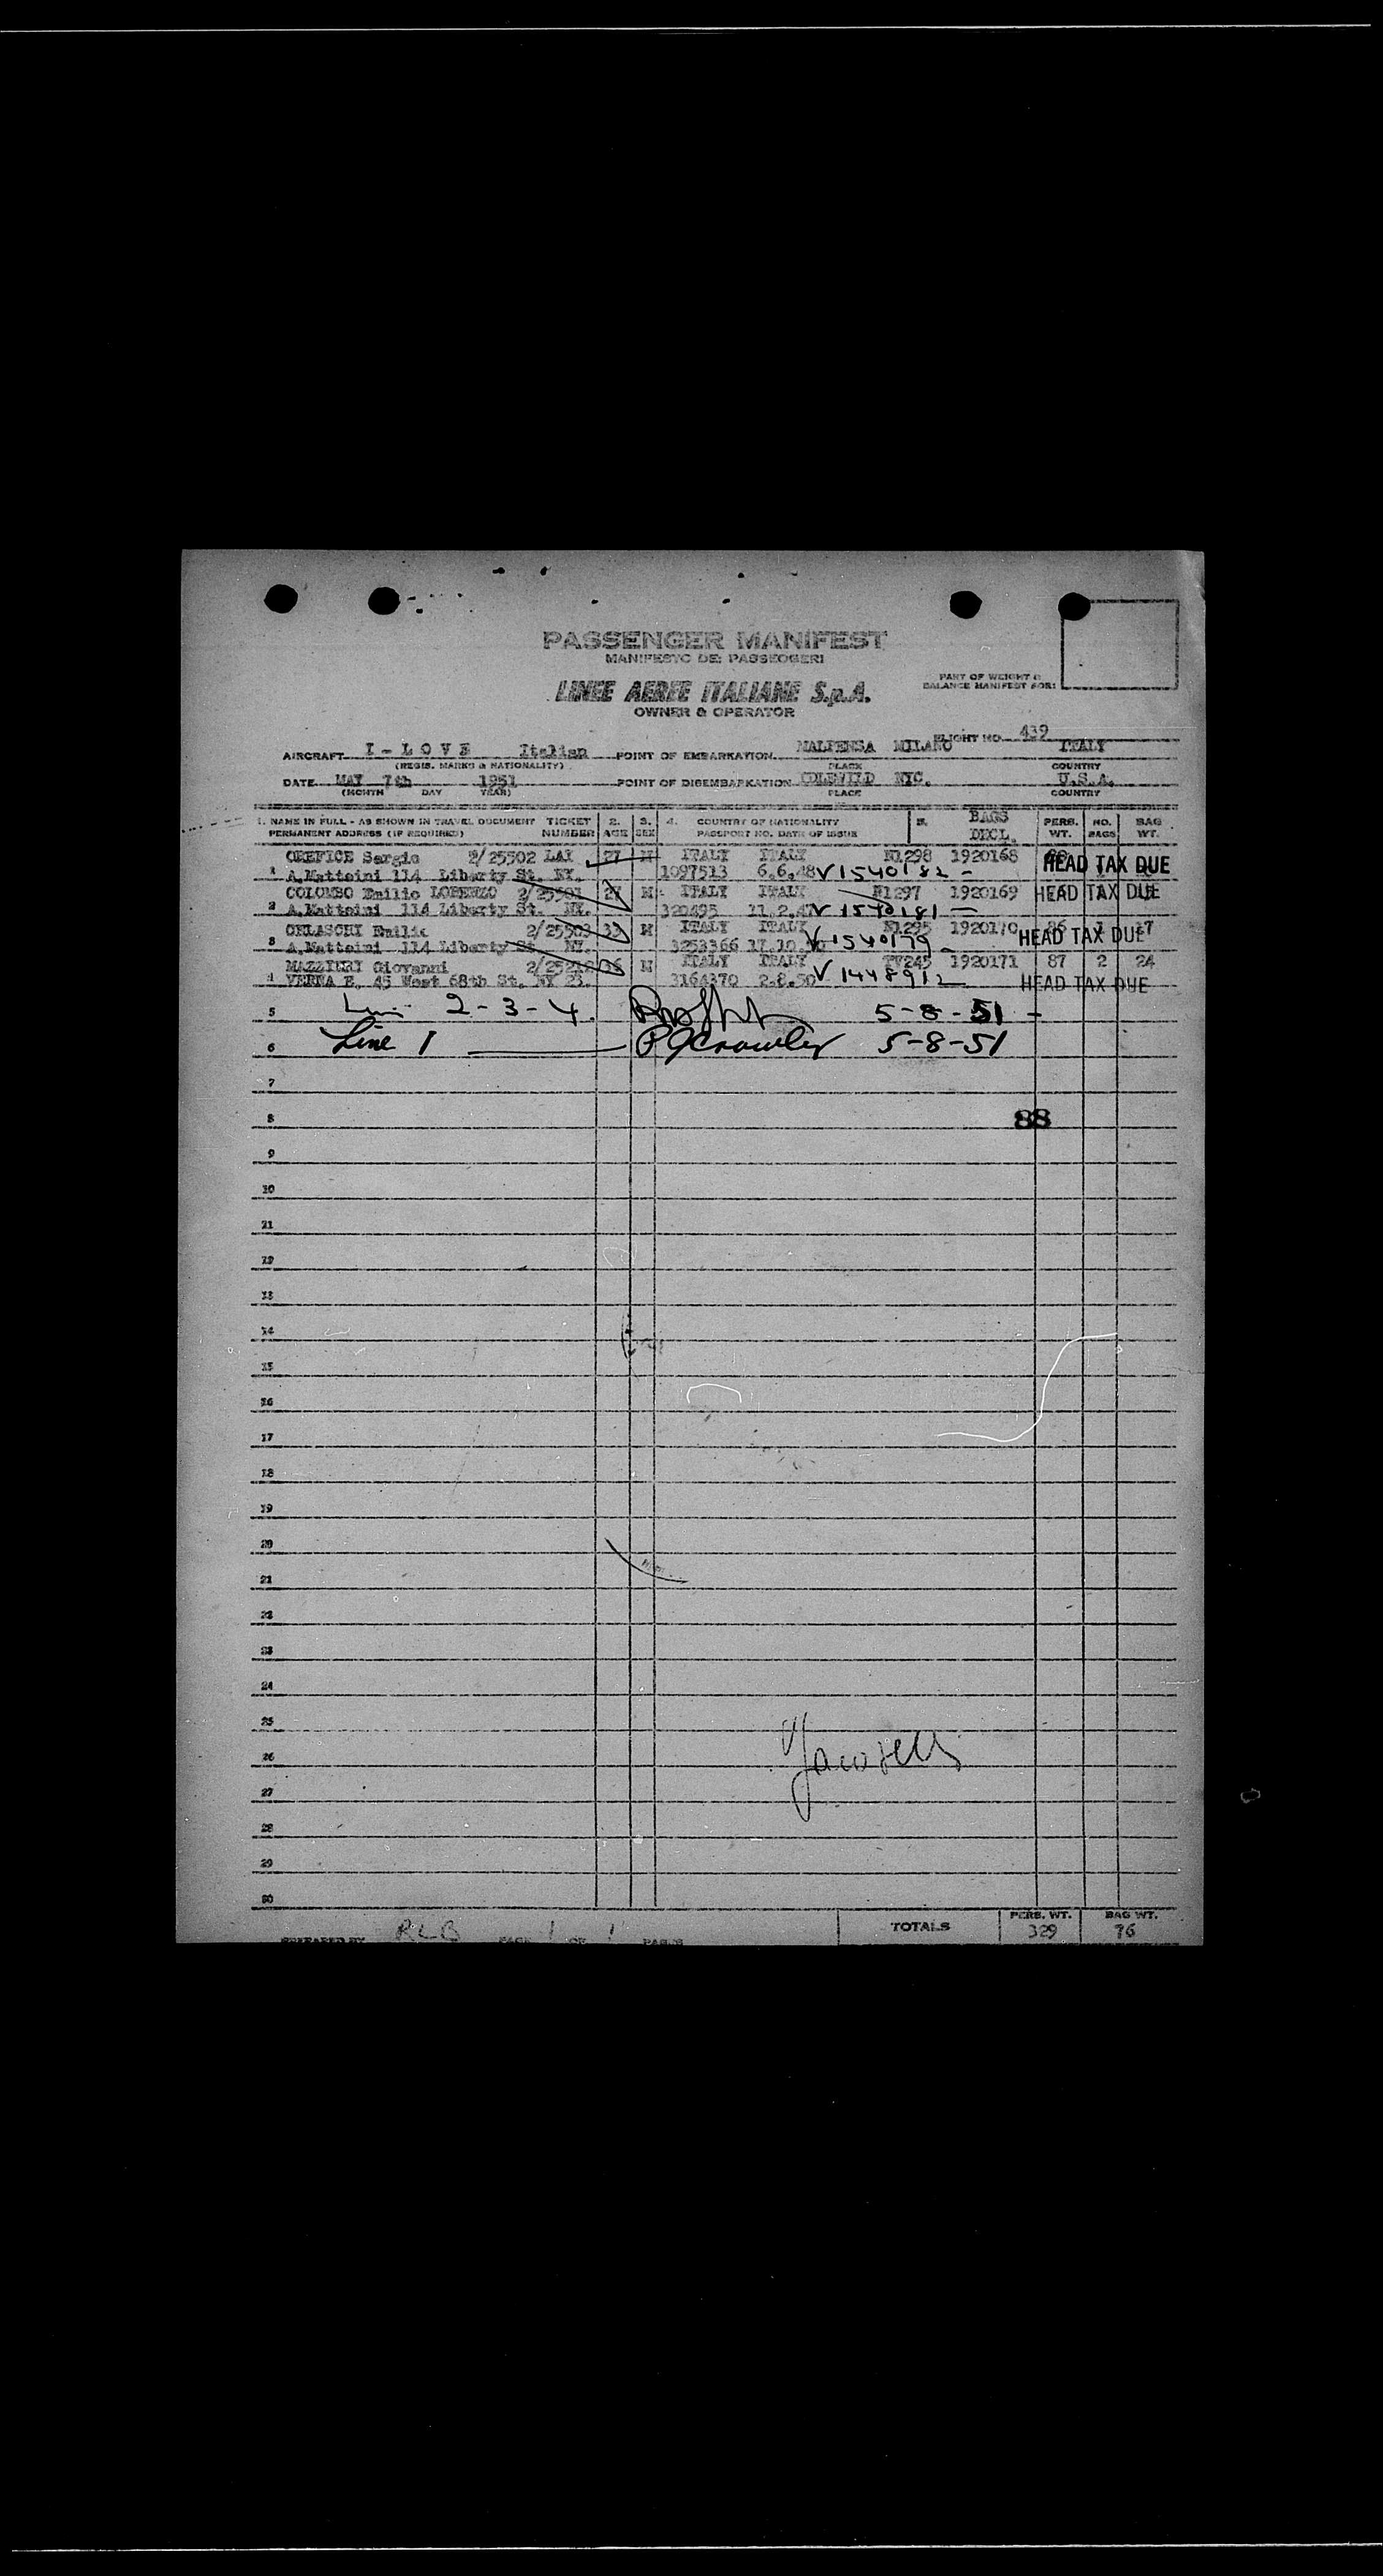 PASSENGER MANIFEST
MANIFESTO DEI PASSEGGERI
PART OF WEIGHT &
BALANCE MANIFEST FOR:
LINEE AEREE ITALIANE S.p.A.
OWNER & OPERATOR
FLIGHT NO. 439
AIRCRAFT I - L O V E Italian POINT OF EMBARKATION MALPENSA MILANO ITALY
(REGIS. MARKS & NATIONALITY) PLACE COUNTRY
DATE MAY 7th 1951 POINT OF DISEMBARKATION NYC. U.S.A.
(MONTH DAY YEAR) PLACE COUNTRY
1. NAME IN FULL - AS SHOWN IN TRAVEL DOCUMENT TICKET 2. 3. 4. COUNTRY OF NATIONALITY 5. BAGS PERS. NO. BAG
PERMANENT ADDRESS (IF REQUIRED) NUMBER AGE SEX PASSPORT NO. DATE OF ISSUE DECL. WT. BAGS WT.
OREFICE Sergio 2/25502 LAI 27 M ITALY ITALY N1298 1920168
1 A.Matteini 114 Liberty St. NY. 1097513 6.6.48 V1540182 - HEAD TAX DUE
COLOMBO Emilio LORENZO 2/25501 27 M ITALY ITALY N1297 1920169 HEAD TAX DUE
2 A.Matteini 114 Liberty St. NY. 320495 11.2.47 V 1540181 -
CELASCHI Emilio 2/25503 33 M ITALY ITALY N1295 1920170 86 1 17
3 A.Matteini 114 Liberty St. NY. 3253366 17.10. V1540179 - HEAD TAX DUE
Giovanni 2/25218 36 M ITALY ITALY TV245 1920171 87 2 24
4 VERNA E. 45 West 68th St. NY 23. 3164370 2.8.50 V 1448912 HEAD TAX DUE
5 2-3-4. 5-8-51 -
6 Line 1 P J Crowley 5-8-51
7
8 88
9
10
11
12
13
14
15
16
17
18
19
20
21
22
23
24
25
26
27
28
29
30
TOTALS PERS. WT. BAG WT.
329 76
PREPARED BY RLB PAGE 1 OF 1 PAGES